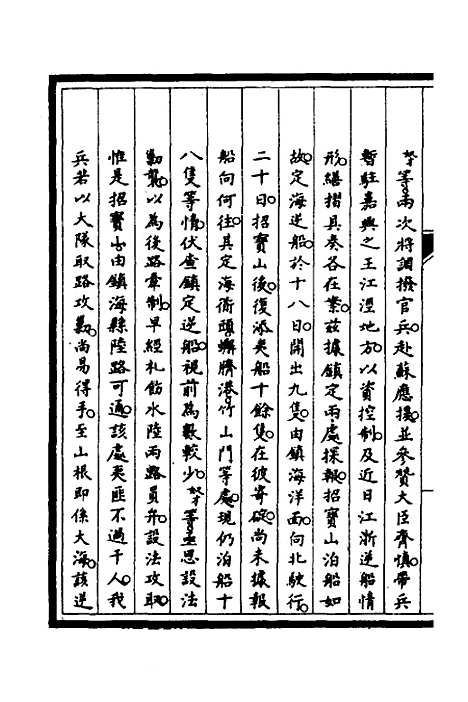 奴才等兩次將調撥官兵赴蘇應援並參贊大臣齊慎帶兵
暫駐嘉興之王江涇地方以資控制及近日江浙逆船情
形繕摺具奏各在案茲據鎮定兩處探報招寶山泊船如
故定海逆船於十八日開出九隻由鎮海洋面向北駛行
二十日招寶山後復添夷船十餘隻在彼寄碇尚未據報
船向何往其定海衜頭嶰臍港竹山門等處現仍泊船十
八隻等情伏查鎮定逆船視前為數較少奴才等亟思設法
勦襲以為後路牽制早經札飭水陸兩路員弁設法攻取
惟是招寶山由鎮海縣陸路可通該處夷匪不過千人我
兵若以大隊取路攻勦尚易得手至山根即係大海該逆